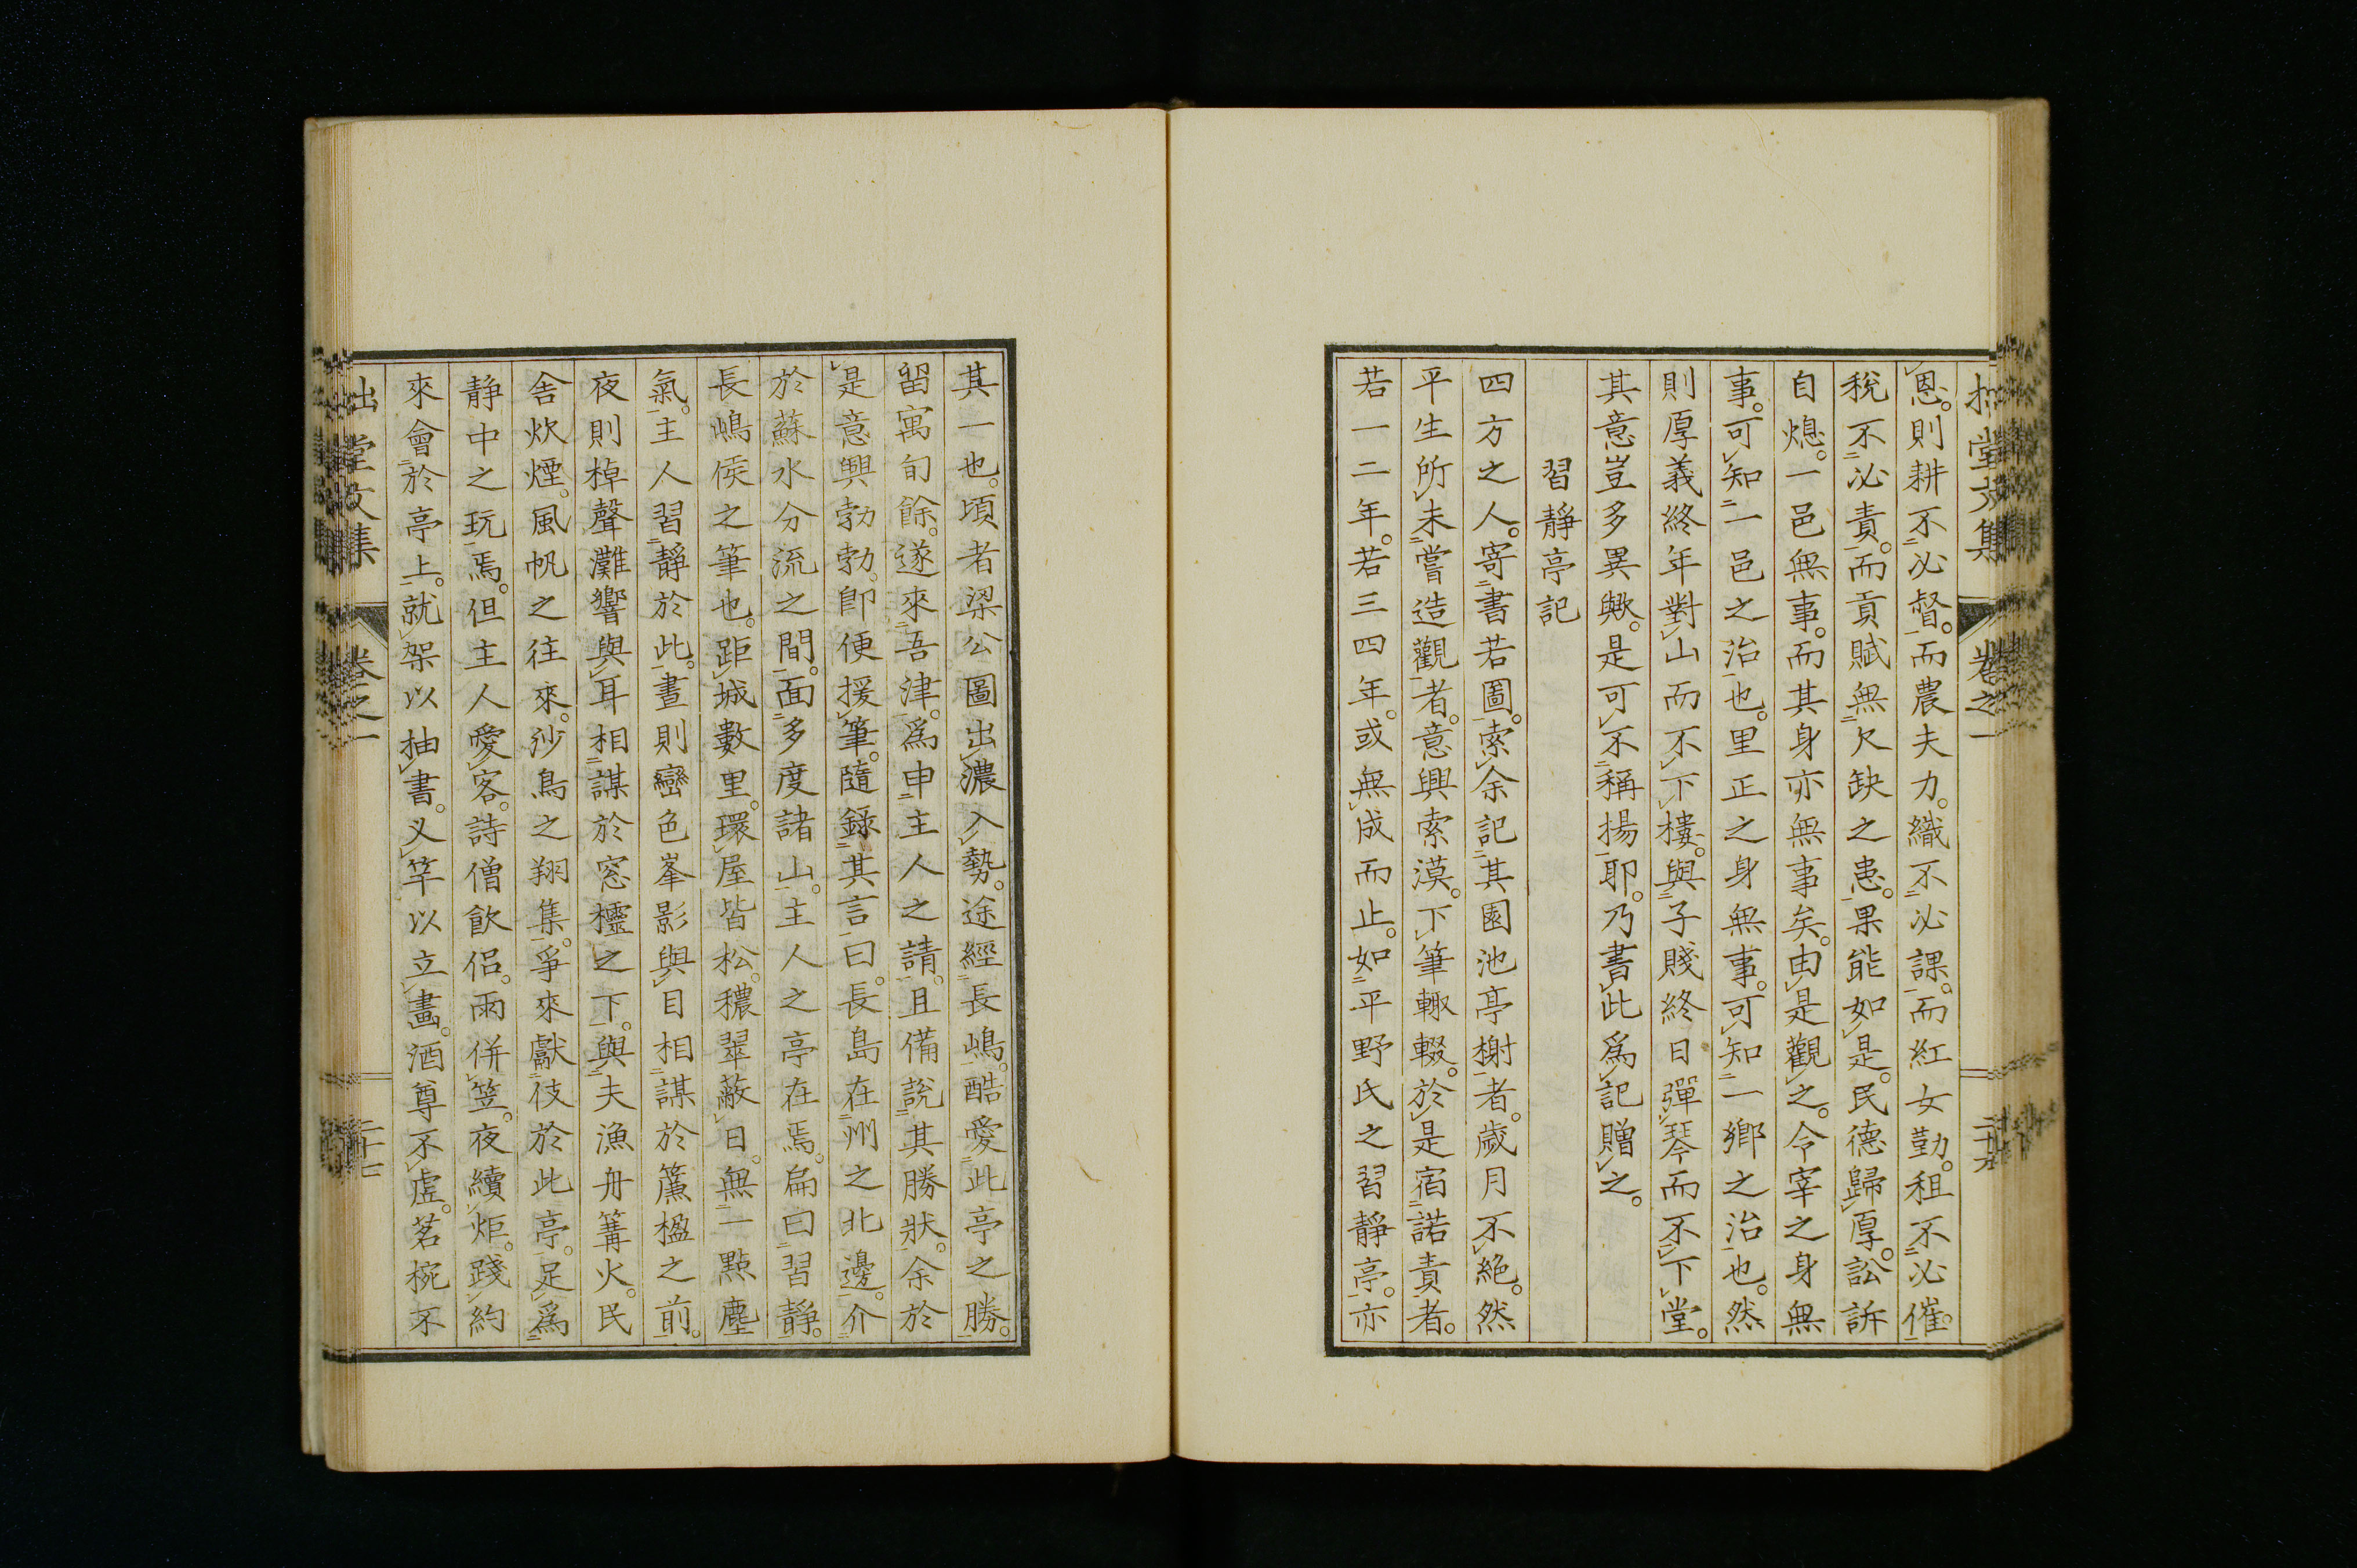 恩。則耕不必督。而農夫力。織不必課。而紅女勤。租不必催。
稅不必責。而貢賦無欠缺之患。果能如是。民德歸厚。訟訴
自熄。一邑無事。而其身亦無事矣。由是觀之。令宰之身無
事。可知一邑之治也。里正之身無事。可知一鄉之治也。然
則厚義終年對山而不下樓。與子賤終日彈琴而不下堂。
其意豈多異歟。是可不稱揚耶。乃書此爲記贈之。
習靜亭記
四方之人。寄書若圖。索余記其園池亭榭者。歲月不絶。然
平生所未嘗造觀者。意興索漠。下筆輙輟。於是宿諾責者。
若一二年。若三四年。或無成而止。如平野氏之習靜亭。亦
其一也。頃者梁公圖出濃入勢。途經長嶋。酷愛此亭之勝。
留寓旬餘。遂來吾津。爲申主人之請。且備說其勝狀。余於
是意興勃勃。卽便援筆。隨錄其言曰。長島在州之北邊。介
於蘇水分流之間。面多度諸山。主人之亭在焉。扁曰習靜。
長嶋侯之筆也。距城數里。環屋皆松。穠翠蔽日。無一點塵
氣。主人習靜於此。晝則巒色峯影與目相謀於簷楹之前。
夜則棹聲灘響與耳相謀於窓櫺之下。與夫漁舟篝火。民
舎炊煙。風帆之往來。沙鳥之翔集。爭來獻伎於此亭。足爲
静中之玩焉。但主人愛客。詩僧飮侶。雨倂笠。夜續炬。踐約
來會於亭上。就架以抽書。乂竿以立畫。酒尊不虛。茗椀不
堂文集 卷之一 二十七